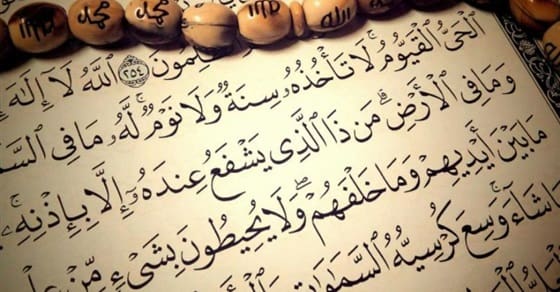 محمد محمد الله
ـلِمُونَ ٢٥٤ ٱللَّهُ لَآ إِلَـٰهَ
ٱلْحَىُّ ٱلْقَيُّومُ ۚ لَا تَأْخُذُهُۥ سِنَةٌ وَلَا نَوْمٌ ۚ لَّهُۥ مَا فِى ٱلسَّـ
وَمَا فِى ٱلْأَرْضِ ۗ مَن ذَا ٱلَّذِى يَشْفَعُ عِندَهُۥٓ إِلَّا بِإِذْنِهِۦ ۚ
مَا بَيْنَ أَيْدِيهِمْ وَمَا خَلْفَهُمْ ۖ وَلَا يُحِيطُونَ بِشَىْءٍ مِّنْ
شَآءَ ۚ وَسِعَ كُرْسِيُّهُ ٱلسَّمَـٰوَٰتِ